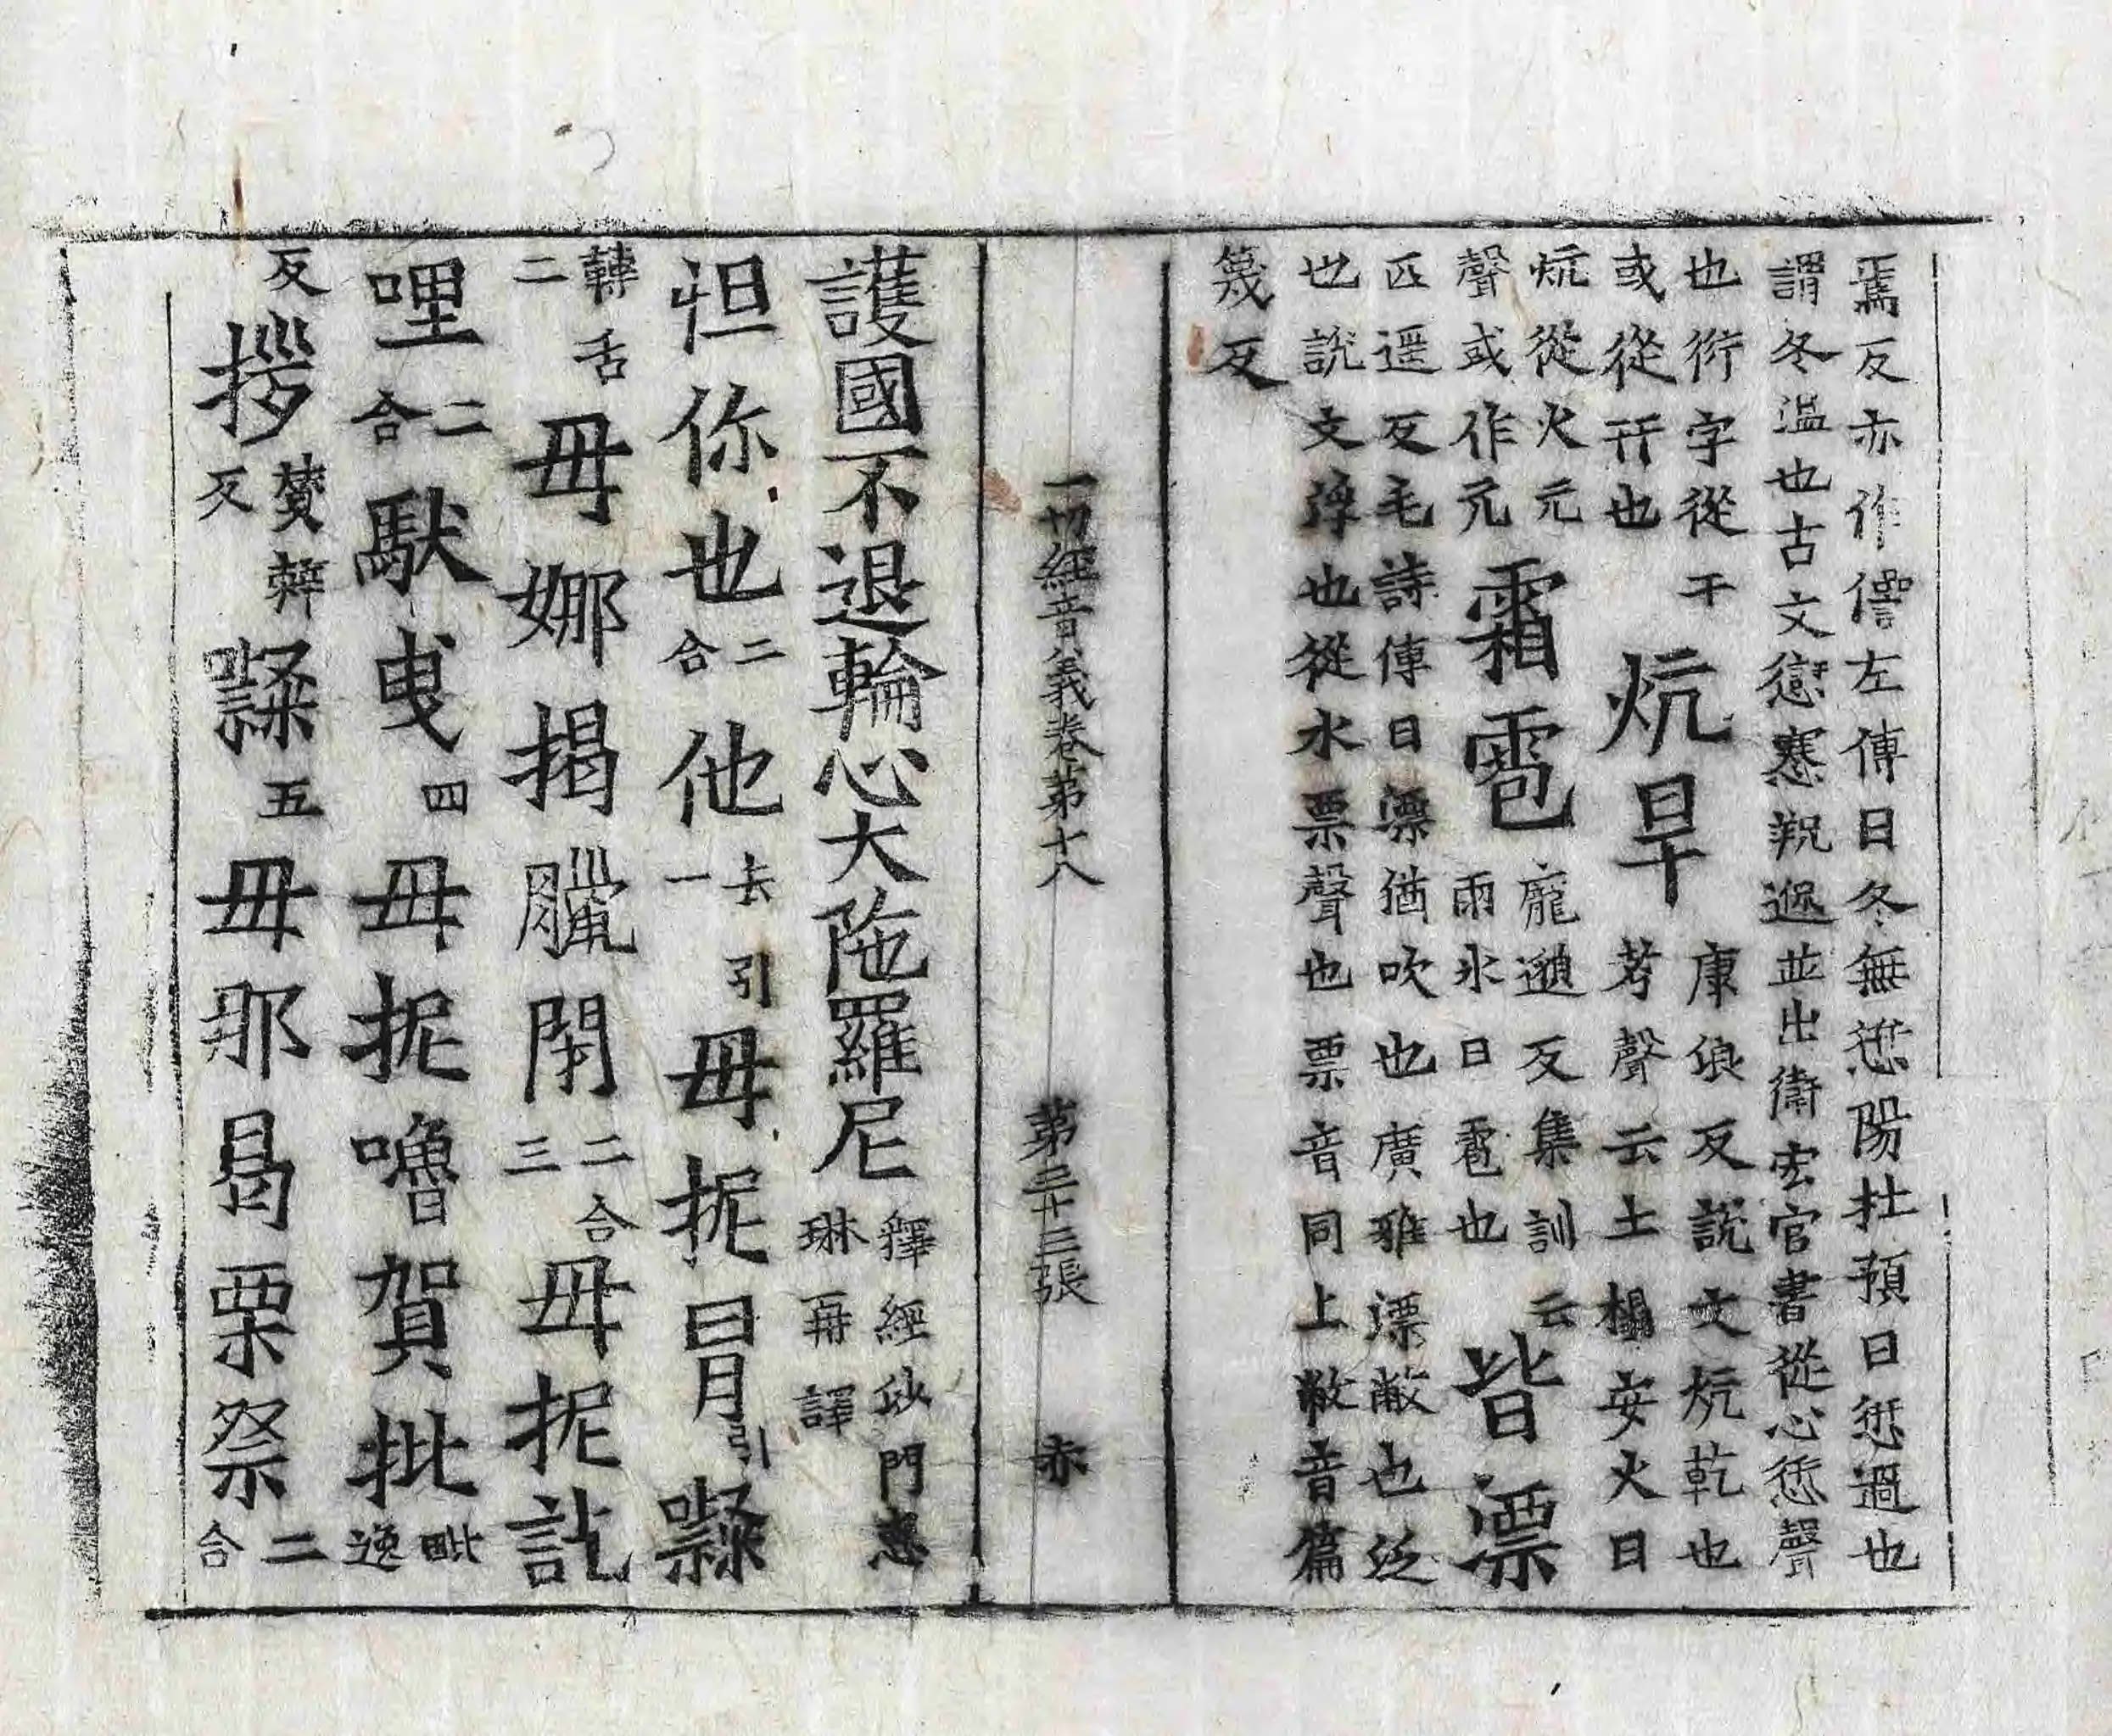 焉反亦作㦣左傳曰冬無愆陽杜預曰愆過也
謂冬溫也古文𠍴寋䇂遃並出衛宏官書從心愆聲
也衍字從干
或從行也
炕旱
康浪反說文炕乾也
考聲云土榻安火曰
炕從火亢
聲或作亢
霜雹
龐邈反集訓云
雨氷曰雹也
皆漂
匹遥反毛詩傳曰漂猶吹也廣雅漂敝也泛
也說文浮也從水票聲也票音同上敝音篇
篾反
一切經音義卷第十八
第三十三張
赤
護國不退輪心大陁羅尼
釋經沙門惠
琳再譯
怛你也
二合
他
去引
一
毋抳冐
引
㘑
轉舌
二
毋娜揭臘閉
二合
三
毋抳訖
哩
二合
䭾曳
四
毋抳嚕賀批
毗逸
反
拶
贊辢
反
㗚
五
毋那曷栗祭
二合